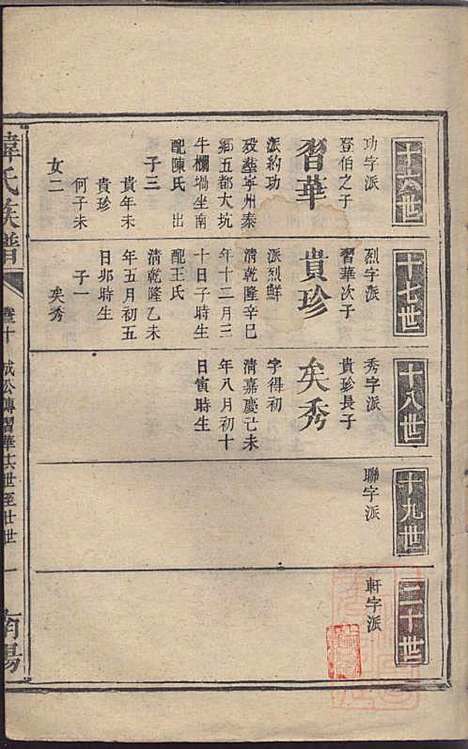 十六世
功字派
登伯之子
習華
派約功
歿葬寧州泰
鄉五都大坑
牛欄塲坐南
配陳氏 出
子三
貴年未
貴珍
何子未
女二
十七世
烈字派
習華次子
貴珍
派烈鮮
清乾隆辛巳
年十二月三
十日子時生
配王氏
清乾隆乙未
年五月初五
日卯時生
子一
矣秀
十八世
秀字派
貴珍長子
矣秀
字得初
清嘉慶己未
年八月初十
日寅時生
十九世
聯字派
二十世
軒字派
氏族譜
卷十
習華十六世至廿世
一
南陽